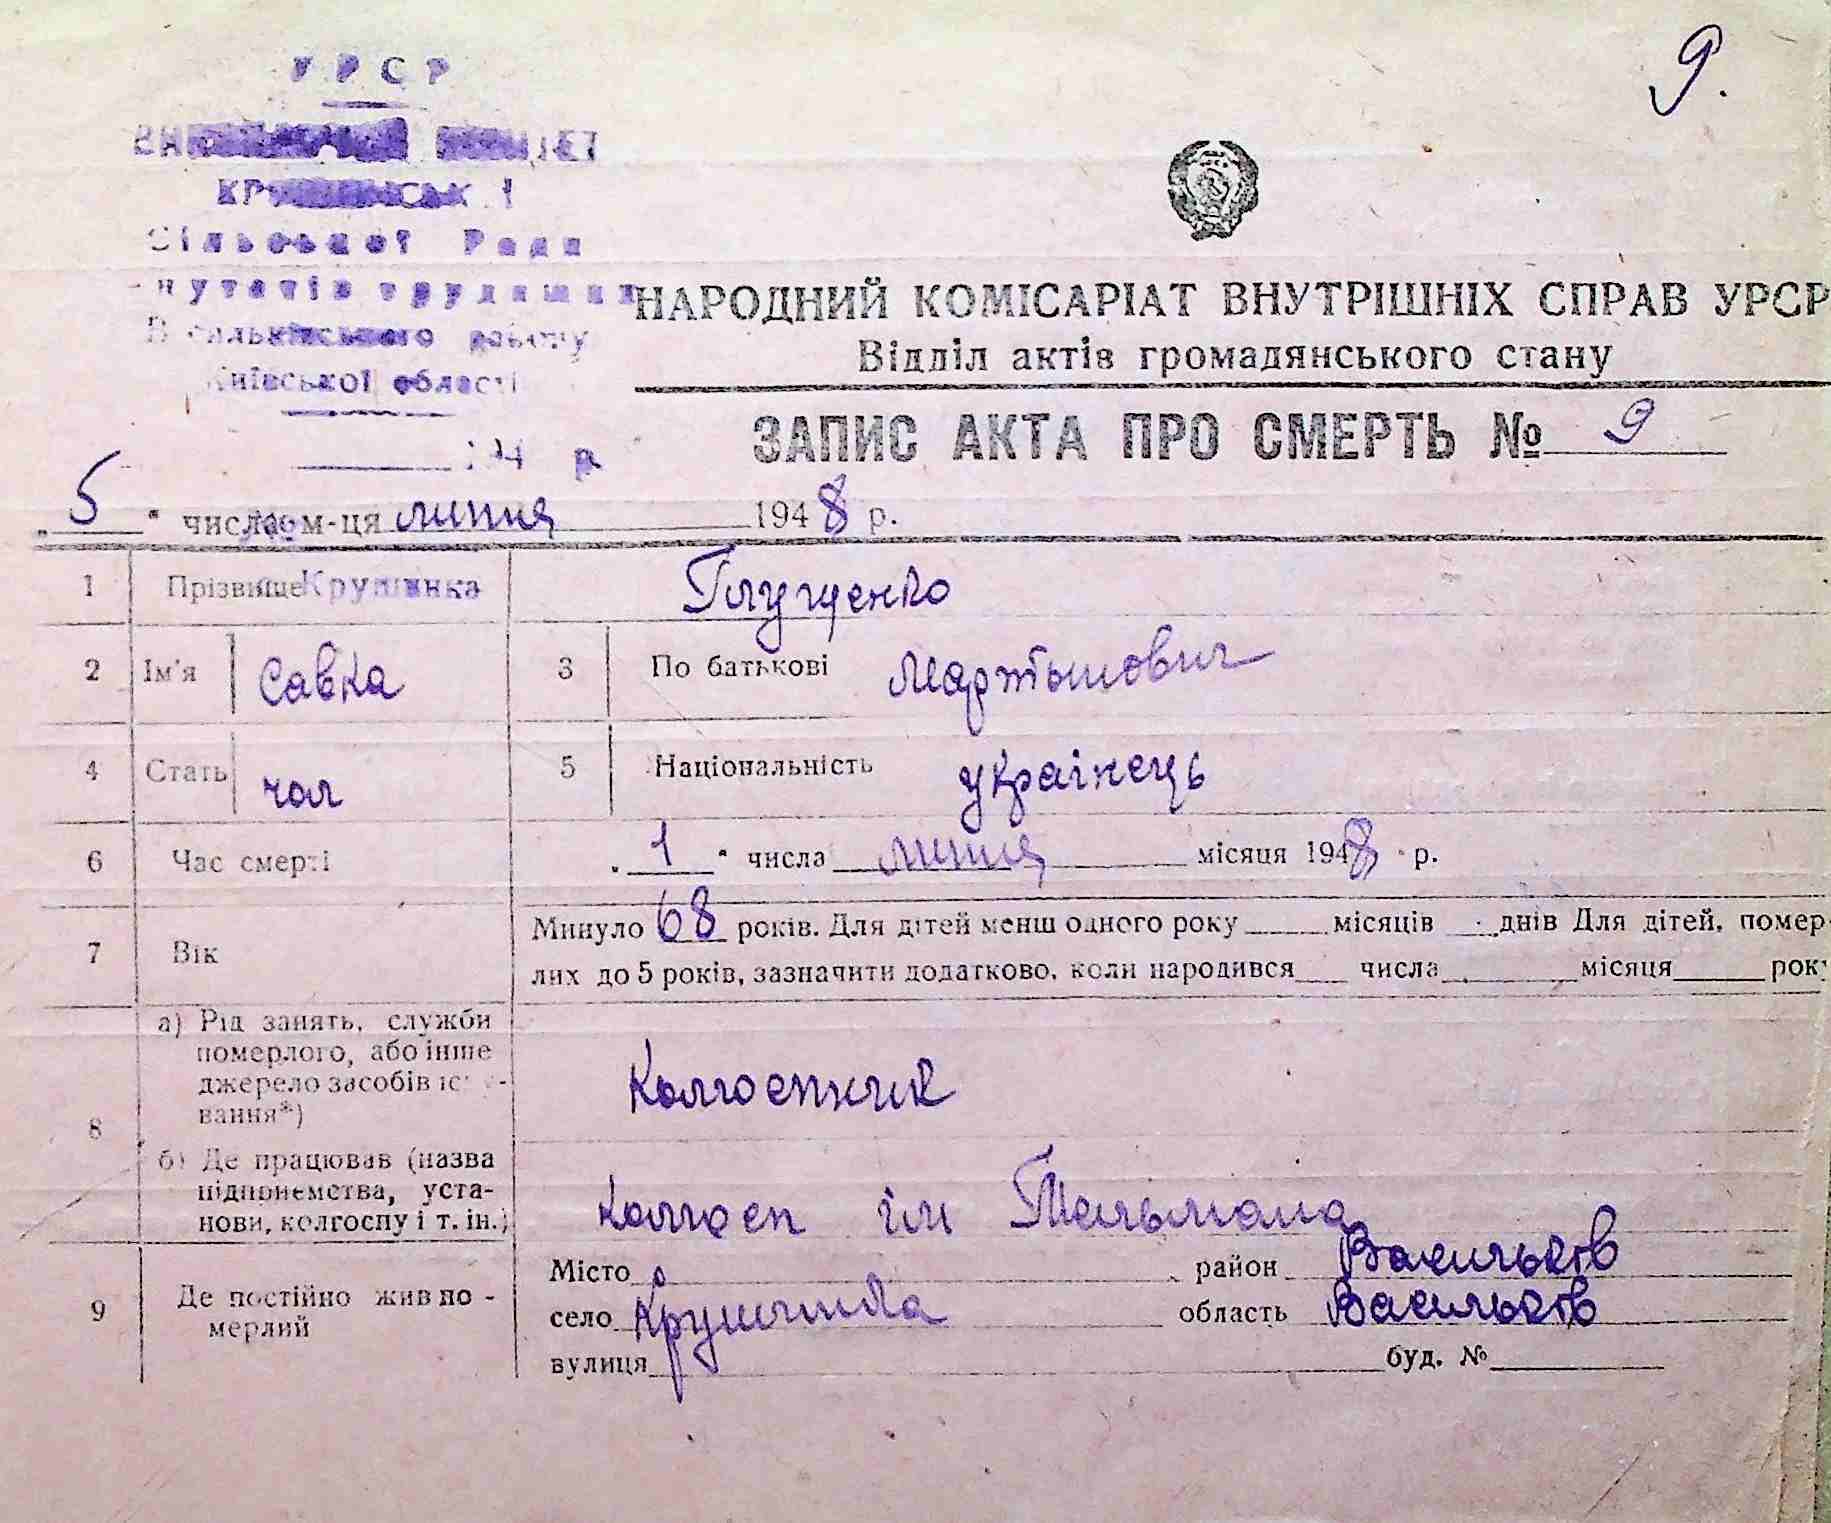 9.
УРСР
Сільської Ради
Київської області
194 р.
НАРОДНИЙ КОМІСАРІАТ ВНУТРІШНІХ СПРАВ УРСР
Відділ актів громадянського стану
ЗАПИС АКТА ПРО СМЕРТЬ № 9
„5“ числа м-ця липня 1948 р.
1 Прізвище Крушинка Глущенко
2 Ім'я Савка 3 По батькові Мартынович
4 Стать чол 5 Національність українець
6 Час смерті „1“ числа липня місяця 1948 р.
7 Вік Минуло 68 років. Для дітей менш одного року місяців днів Для дітей, помер-
лих до 5 років, зазначити додатково, коли народився числа місяця року
8 а) Рід занять, служби
померлого, або інше
джерело засобів існу-
вання*)
Колгоспник
б) Де працював (назва
підприємства, уста-
нови, колгоспу і т. ін.)
Колгосп ім Тельмана
9 Де постійно жив по-
мерлий
Місто район Васильков
село Крушинка область Васильков
вулиця буд. №